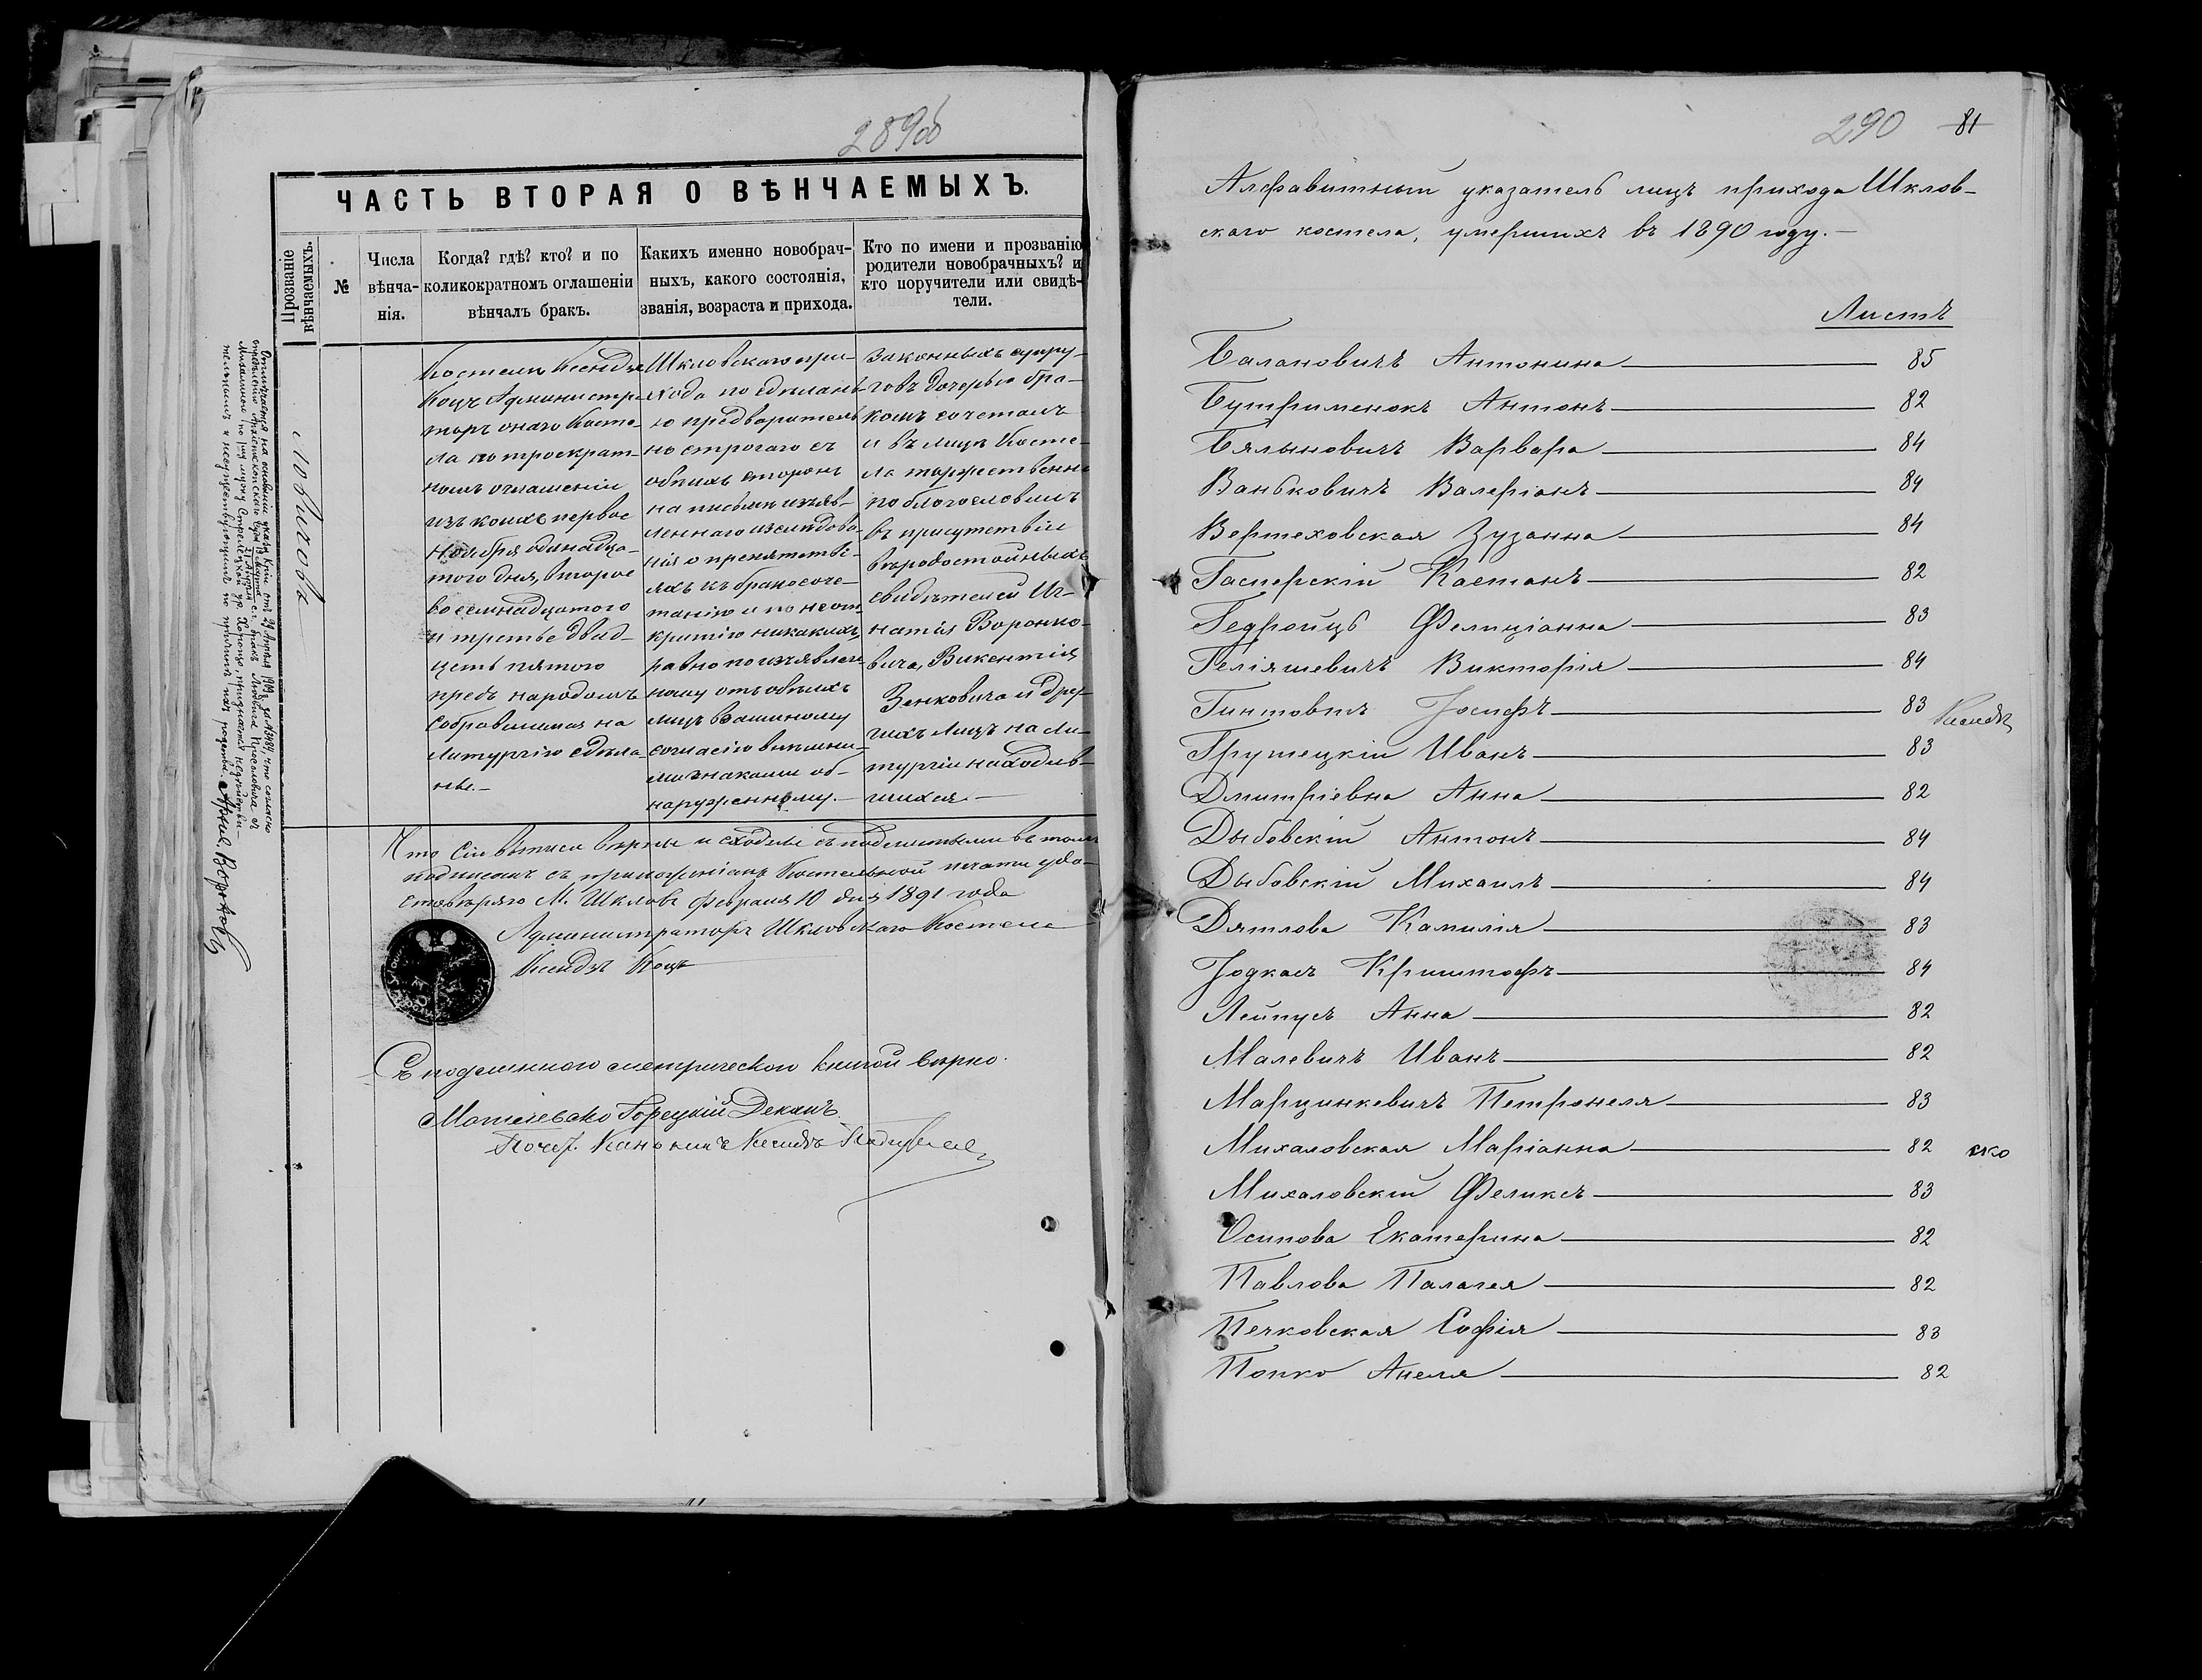 289об
ЧАСТЬ ВТОРАЯ О ВѢНЧАЕМЫХЪ.
Прозваніе вѣнчаемыхъ.
№
Числа вѣнча-
нія.
Когда? гдѣ? кто? и по
коликократномъ оглашеніи
вѣнчалъ бракъ.
Какихъ именно новобрач-
ныхъ, какого состоянія,
званія, возраста и прихода.
Кто по имени и прозванію
родители новобрачныхъ? и
кто поручители или свидѣ-
тели.
Костела Ксендзъ
Коцъ Администра-
торъ онаго Косте-
ла по троекрат-
номъ оглашеніи
изъ коихъ первое
Ноября одинадца-
того дня, второе
восемнадцатого
и третье двад-
цеть пятого
предъ народомъ
собравшимся на
Литургію сдѣла-
ны.-
Шкловскаго при-
хода по сдѣлані-
ю предваритель-
но строгаго съ
обѣихъ сторонъ
на письмѣ изъяв-
леннаго изслѣдова-
нія о препятстві-
яхъ къ бракосоче-
танію и по неот-
крытію никакихъ,
равно по изъявлен-
ному отъ обѣихъ
лицъ взаимному
согласію внѣшни-
ми знаками об-
наруженному.-
законныхъ супру-
говъ дочерью бра-
комъ сочеталъ
и въ лицѣ Косте-
ла торжественно
поблагословилъ
въ присутствіи
вѣродостойныхъ
свидѣтелей Иг-
натія Воронко-
вича, Викентія
Зенковича и дру-
гихъ лицъ на Ли-
тургіи находив-
шихся.-
Что сіи выписи вѣрны и сходны съ подлинными въ томъ
подписомъ съ приложеніемъ Костельной печати удо-
стовѣряю М. Шкловъ Февраля 10 дня 1891 года
Администраторъ Шкловскаго Костела
Ксендзъ Коцъ
Съ подлинного метрическою книгою вѣрно.
Могилевско Горецкій Деканъ
Почет. Каноникъ Ксендзъ
290 81
Алфавитный указатель лицъ прихода Шклов-
скаго костела, умершихъ въ 1890 году.-
Листъ
Балановичъ Антонина 85
Бутрименокъ Антонъ 82
Бялыновичъ Варвара 84
Ваньковичъ Валеріанъ 84
Вертеховская Зузанна 84
Гасперскій Каетанъ 82
Гедройцъ Фелиціанна 83
Геліяшевичъ Викторія 84
Гинтовтъ Іосифъ 83 Ксендзъ
Грутецкій Иванъ 83
Дмитріевна Анна 82
Дыбовскій Антонъ 84
Дыбовскій Михаилъ 84
Дятлова Камилія 83
Іодкасъ Криштофъ 84
Лейпусъ Анна 82
Малевичъ Иванъ 82
Марцинкевичъ Петронеля 83
Михаловская Маріанна 82 ско
Михаловскій Феликсъ 83
Осипова Екатерина 82
Павлова Палагея 82
Печковская Софія 83
Попко Анеля 82